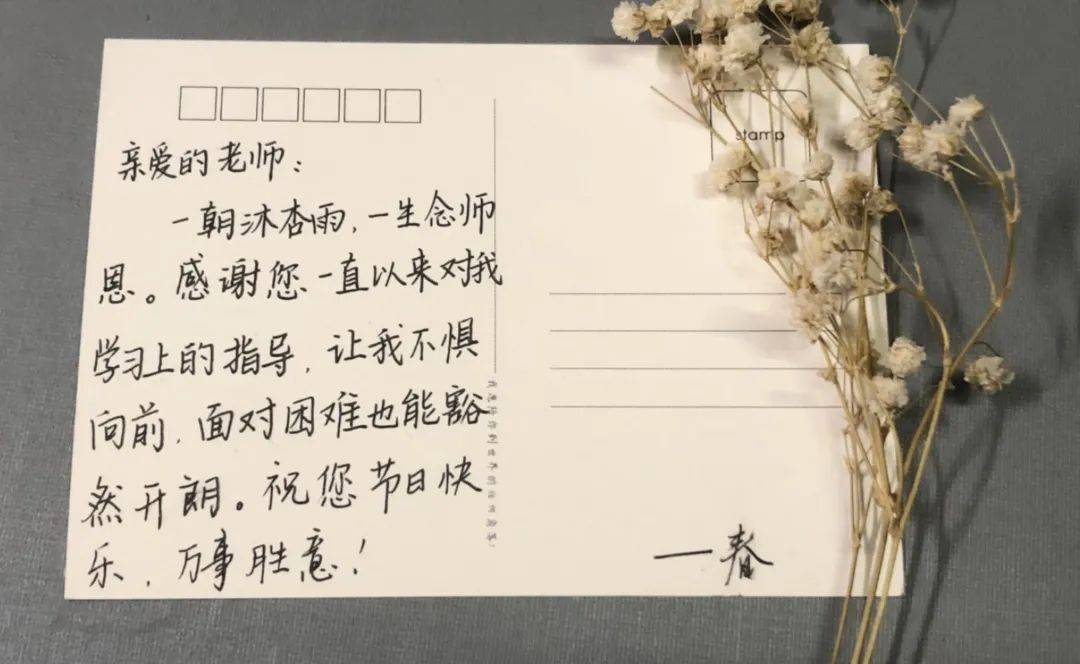 亲爱的老师：
一朝沐杏雨，一生念师
恩。感谢您一直以来对我
学习上的指导，让我不惧
向前，面对困难也能豁
然开朗。祝您节日快
乐，万事胜意！
stamp
我愿陪你到世界的任何角落！
一春